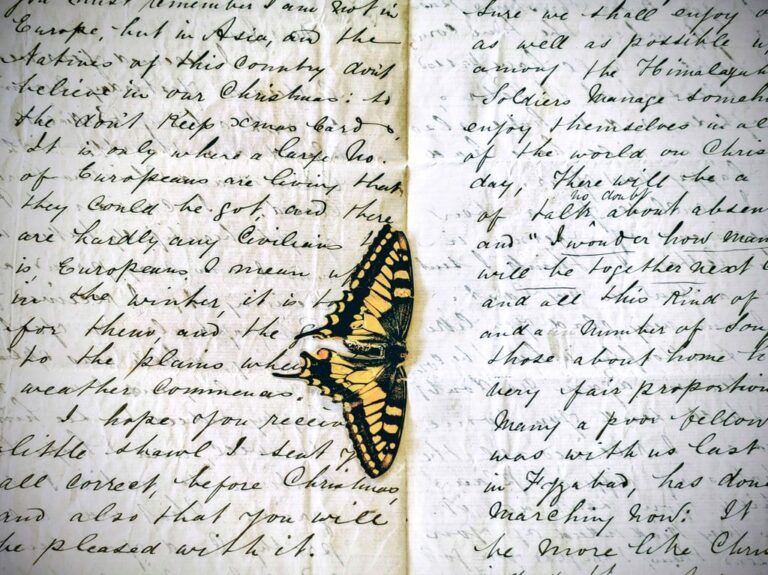 you must remember I am not in
Europe, but in Asia, and the
Natives of this Country don't
believe in our Christmas: so
the don't Keep Xmas Cards,
It is only where a large No.
of Europeans are living that
they could be got, and there
are hardly any Civilians
is, Europeans, I mean
in the winter, it is
for them, and the
to the plains when
weather Commences.
I hope you receiv
little shawl I sent
all correct, before Christmas,
and also that you will
be pleased with it.
Sure we shall enjoy
as well as possible
among the Himalayah
Soldiers Manage someh
enjoy themselves in al
of the world on Chris
day, There will be a
no doubt
of talk about absen
and "I wonder how man
will be together next
and all this Kind of
and a Number of Son
those about home
very fair proportion
Many a poor fellow
was with us last
in Fyzabad, has don
Marching Now: It
be more like Chri